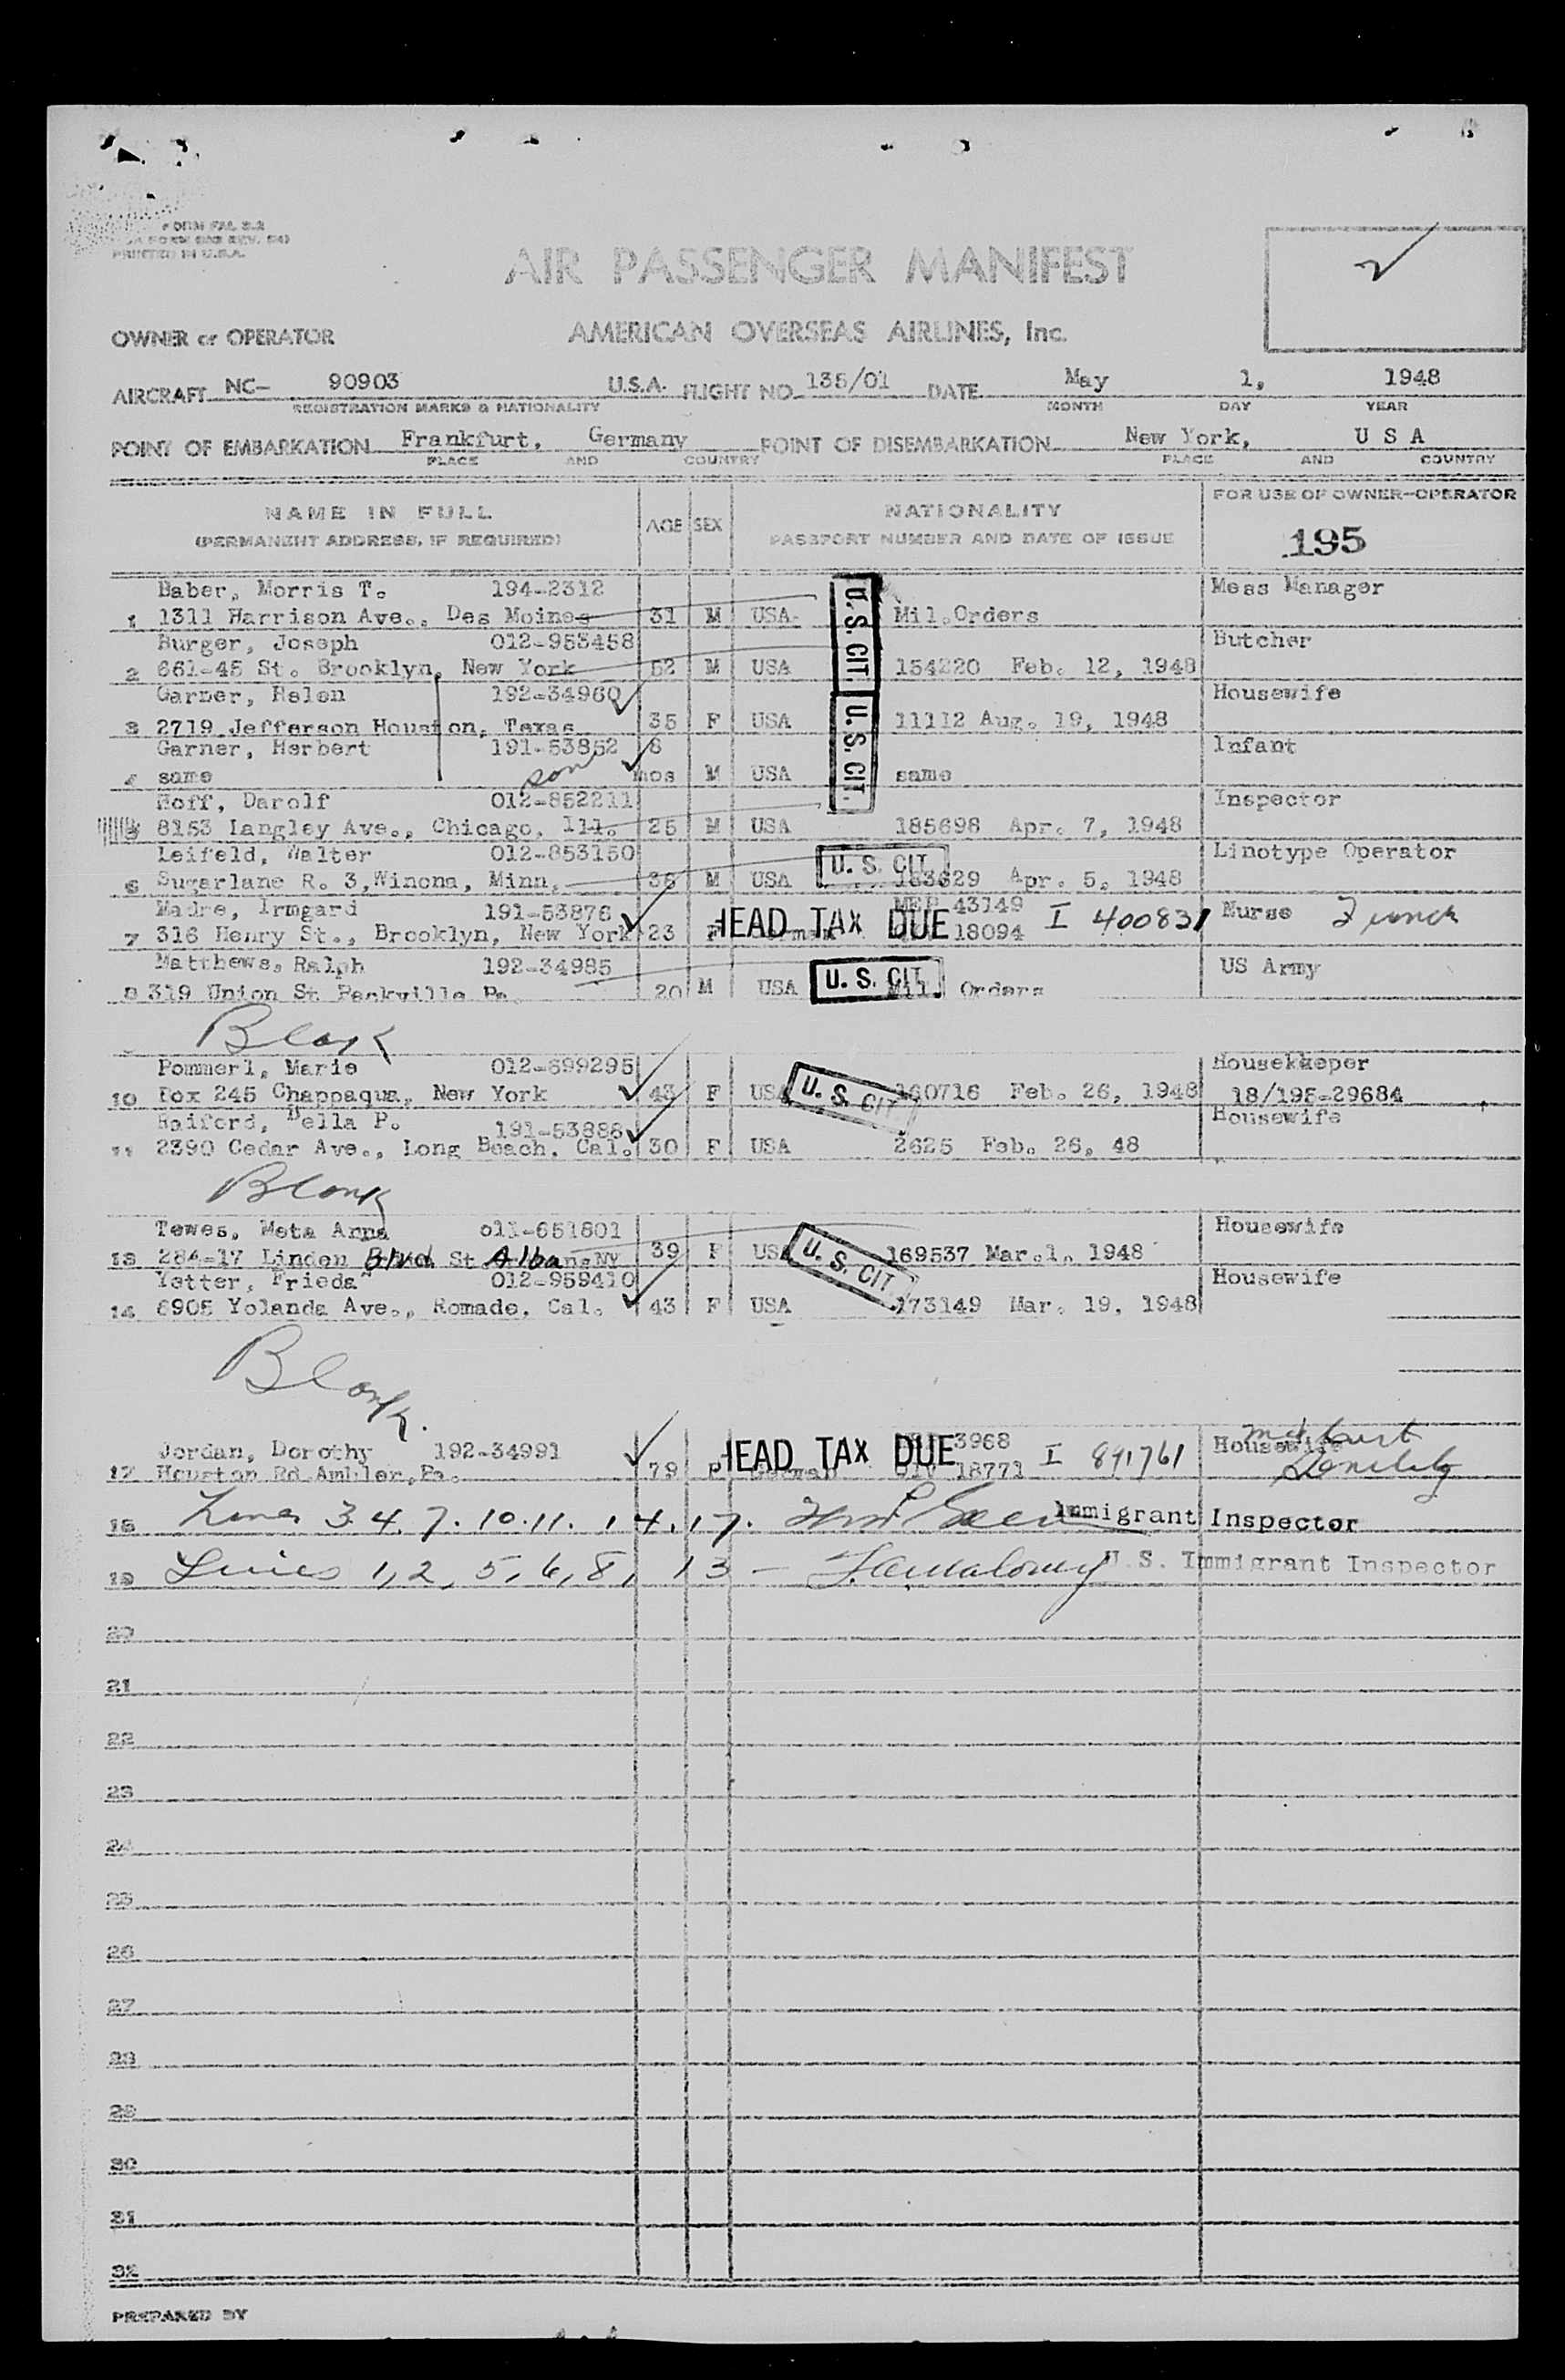 FORM FAL 2.2
PRINTED IN U.S.A.
AIR PASSENGER MANIFEST
OWNER or OPERATOR AMERICAN OVERSEAS AIRLINES, Inc.
AIRCRAFT NC- 90903 U.S.A. FLIGHT NO. 135/01 DATE May 1, 1948
REGISTRATION MARKS & NATIONALITY MONTH DAY YEAR
POINT OF EMBARKATION Frankfurt, Germany POINT OF DISEMBARKATION New York, U S A
PLACE AND COUNTRY PLACE AND COUNTRY
NAME IN FULL AGE SEX NATIONALITY FOR USE OF OWNER-OPERATOR
(PERMANENT ADDRESS, IF REQUIRED) PASSPORT NUMBER AND DATE OF ISSUE 195
Baber, Morris T. 194-2312 Mess Manager
1 1311 Harrison Ave., Des Moines 31 M USA U.S. CIT. Mil.Orders
Burger, Joseph 012-953458 Butcher
2 661-45 St. Brooklyn, New York 52 M USA 154220 Feb. 12, 1948
Garner, Helen 192-34960 Housewife
3 2719 Jefferson Houston, Texas 35 F USA U.S. CIT. 11112 Aug. 19, 1948
Garner, Herbert 191-53852 8 Infant
4 same son mos M USA same
Hoff, Darolf 012-852211 Inspector
5 8153 Langley Ave., Chicago, Ill. 25 M USA 185698 Apr. 7, 1948
Leifeld, Walter 012-853150 Linotype Operator
6 Sugarlane R. 3,Winona, Minn. 36 M USA U. S. CIT. 183629 Apr. 5, 1948
Madre, Irmgard 191-53876 MER 43149 Nurse
7 316 Henry St., Brooklyn, New York 23 F HEAD TAX DUE 18094 I 400831
Matthews, Ralph 192-34985 US Army
8 319 Union St Parkville Pa. 20 M USA U. S. CIT. Mil. Orders
Blank
Pommerl, Marie 012-899295 Housekkeper
10 Box 245 Chappaqua, New York 43 F USA U. S. CIT 160716 Feb. 26, 1948 18/195-29684
Raiford, Della P. 191-53888 Housewife
11 2390 Cedar Ave., Long Beach, Cal. 30 F USA 2625 Feb. 26, 48
Blank
Tewes, Meta Anna 011-651801 Housewife
13 284-17 Linden Blvd St Albans NY 39 F USA U. S. CIT. 169537 Mar.1, 1948
Yetter, Frieda 012-959410 Housewife
14 6905 Yolanda Ave., Romade, Cal. 43 F USA 173149 Mar. 19, 1948
Blank.
Jordan, Dorothy 192-34991 3968 Housewife
17 Houston Rd Ambler,Pa. 79 F HEAD TAX DUE German 18771 I 891761
18 Lines 3 4. 7. 10. 11. 14. 17. Immigrant Inspector
19 Lines 1, 2, 5, 6, 8, 13 - U. S. Immigrant Inspector
20
21
22
23
24
25
26
27
28
29
30
31
32
PREPARED BY